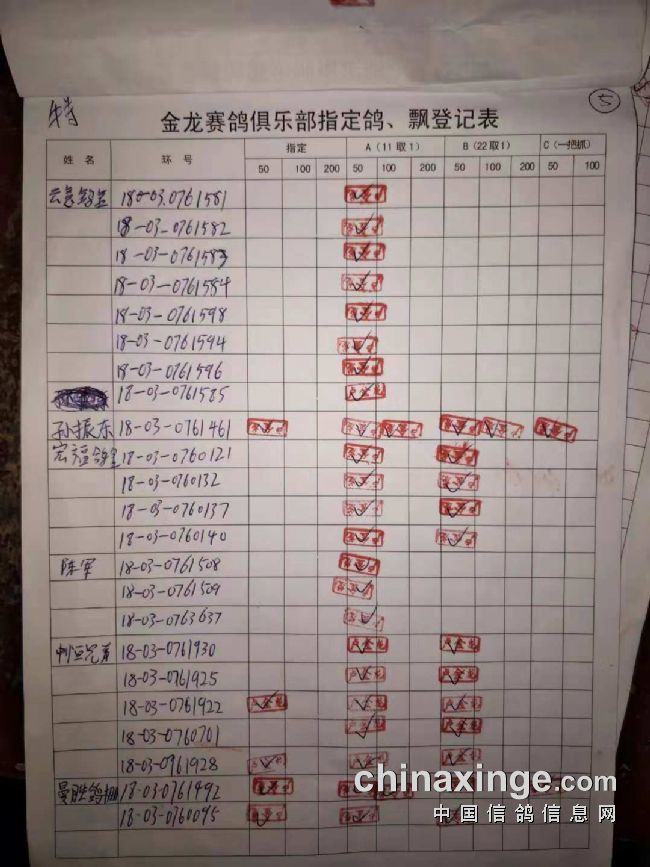 特
5
金龙赛鸽俱乐部指定鸽、飘登记表
姓 名 环 号 指定 A (11 取 1) B (22 取 1) C (一把抓)
50 100 200 50 100 200 50 100 200 50 100
18-03-0761581
18-03-0761582
18-03-0761583
18-03-0761584
18-03-0761598
18-03-0761594
18-03-0761596
18-03-0761585
孙振东 18-03-0761461
宏福鸽 18-03-0760121
18-03-0760132
18-03-0760137
18-03-0760140
陈军 18-03-0761508
18-03-0761509
18-03-0763637
兄弟 18-03-0761930
18-03-0761925
18-03-0761922
18-03-0760701
18-03-0761928
曼胜鸽棚 18-03-0761492
18-03-0360095
chinaxinge.com
中国信鸽信息网